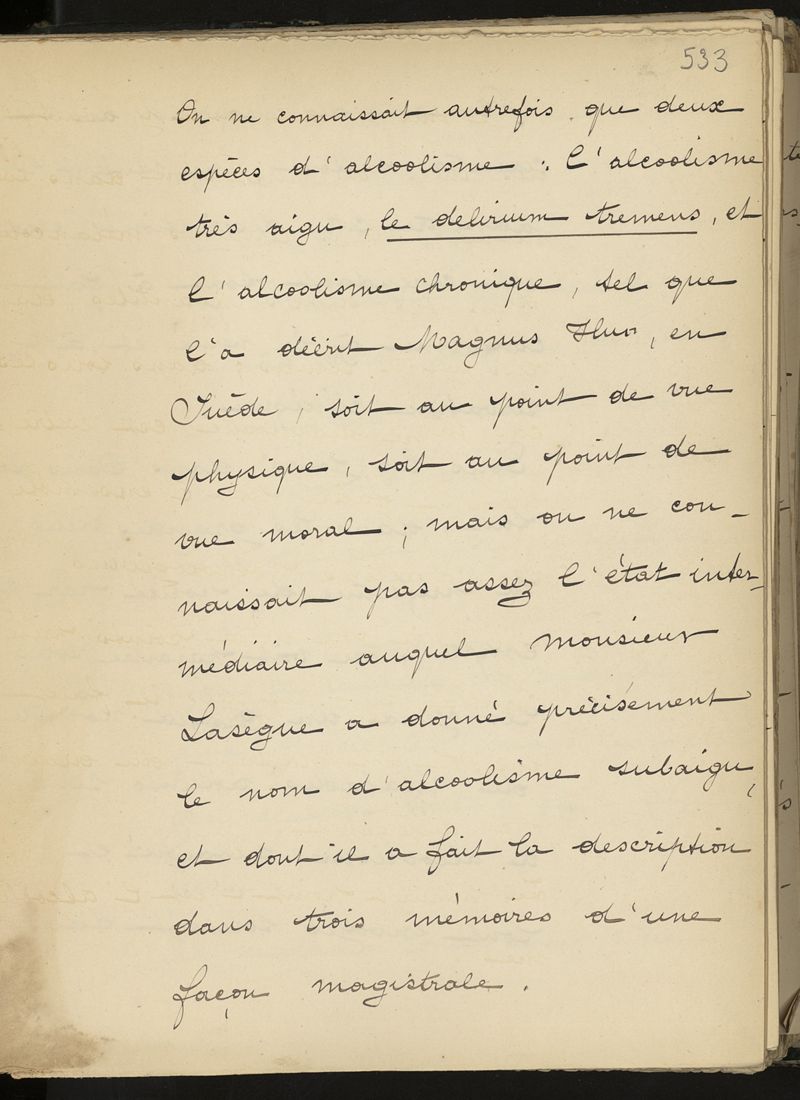 533
On ne connaissait autrefois que deux
espèces d'alcoolisme : l'alcoolisme
très aigu, le delirium tremens, et
l'alcoolisme chronique, tel que
l'a décrit Magnus Huss, en
Suède, soit au point de vue
physique, soit au point de
vue moral ; mais on ne con-
naissait pas assez l'état inter-
médiaire auquel monsieur
Lasègue a donné précisément
le nom d'alcoolisme subaigu,
et dont il a fait la description
dans trois mémoires d'une
façon magistrale.